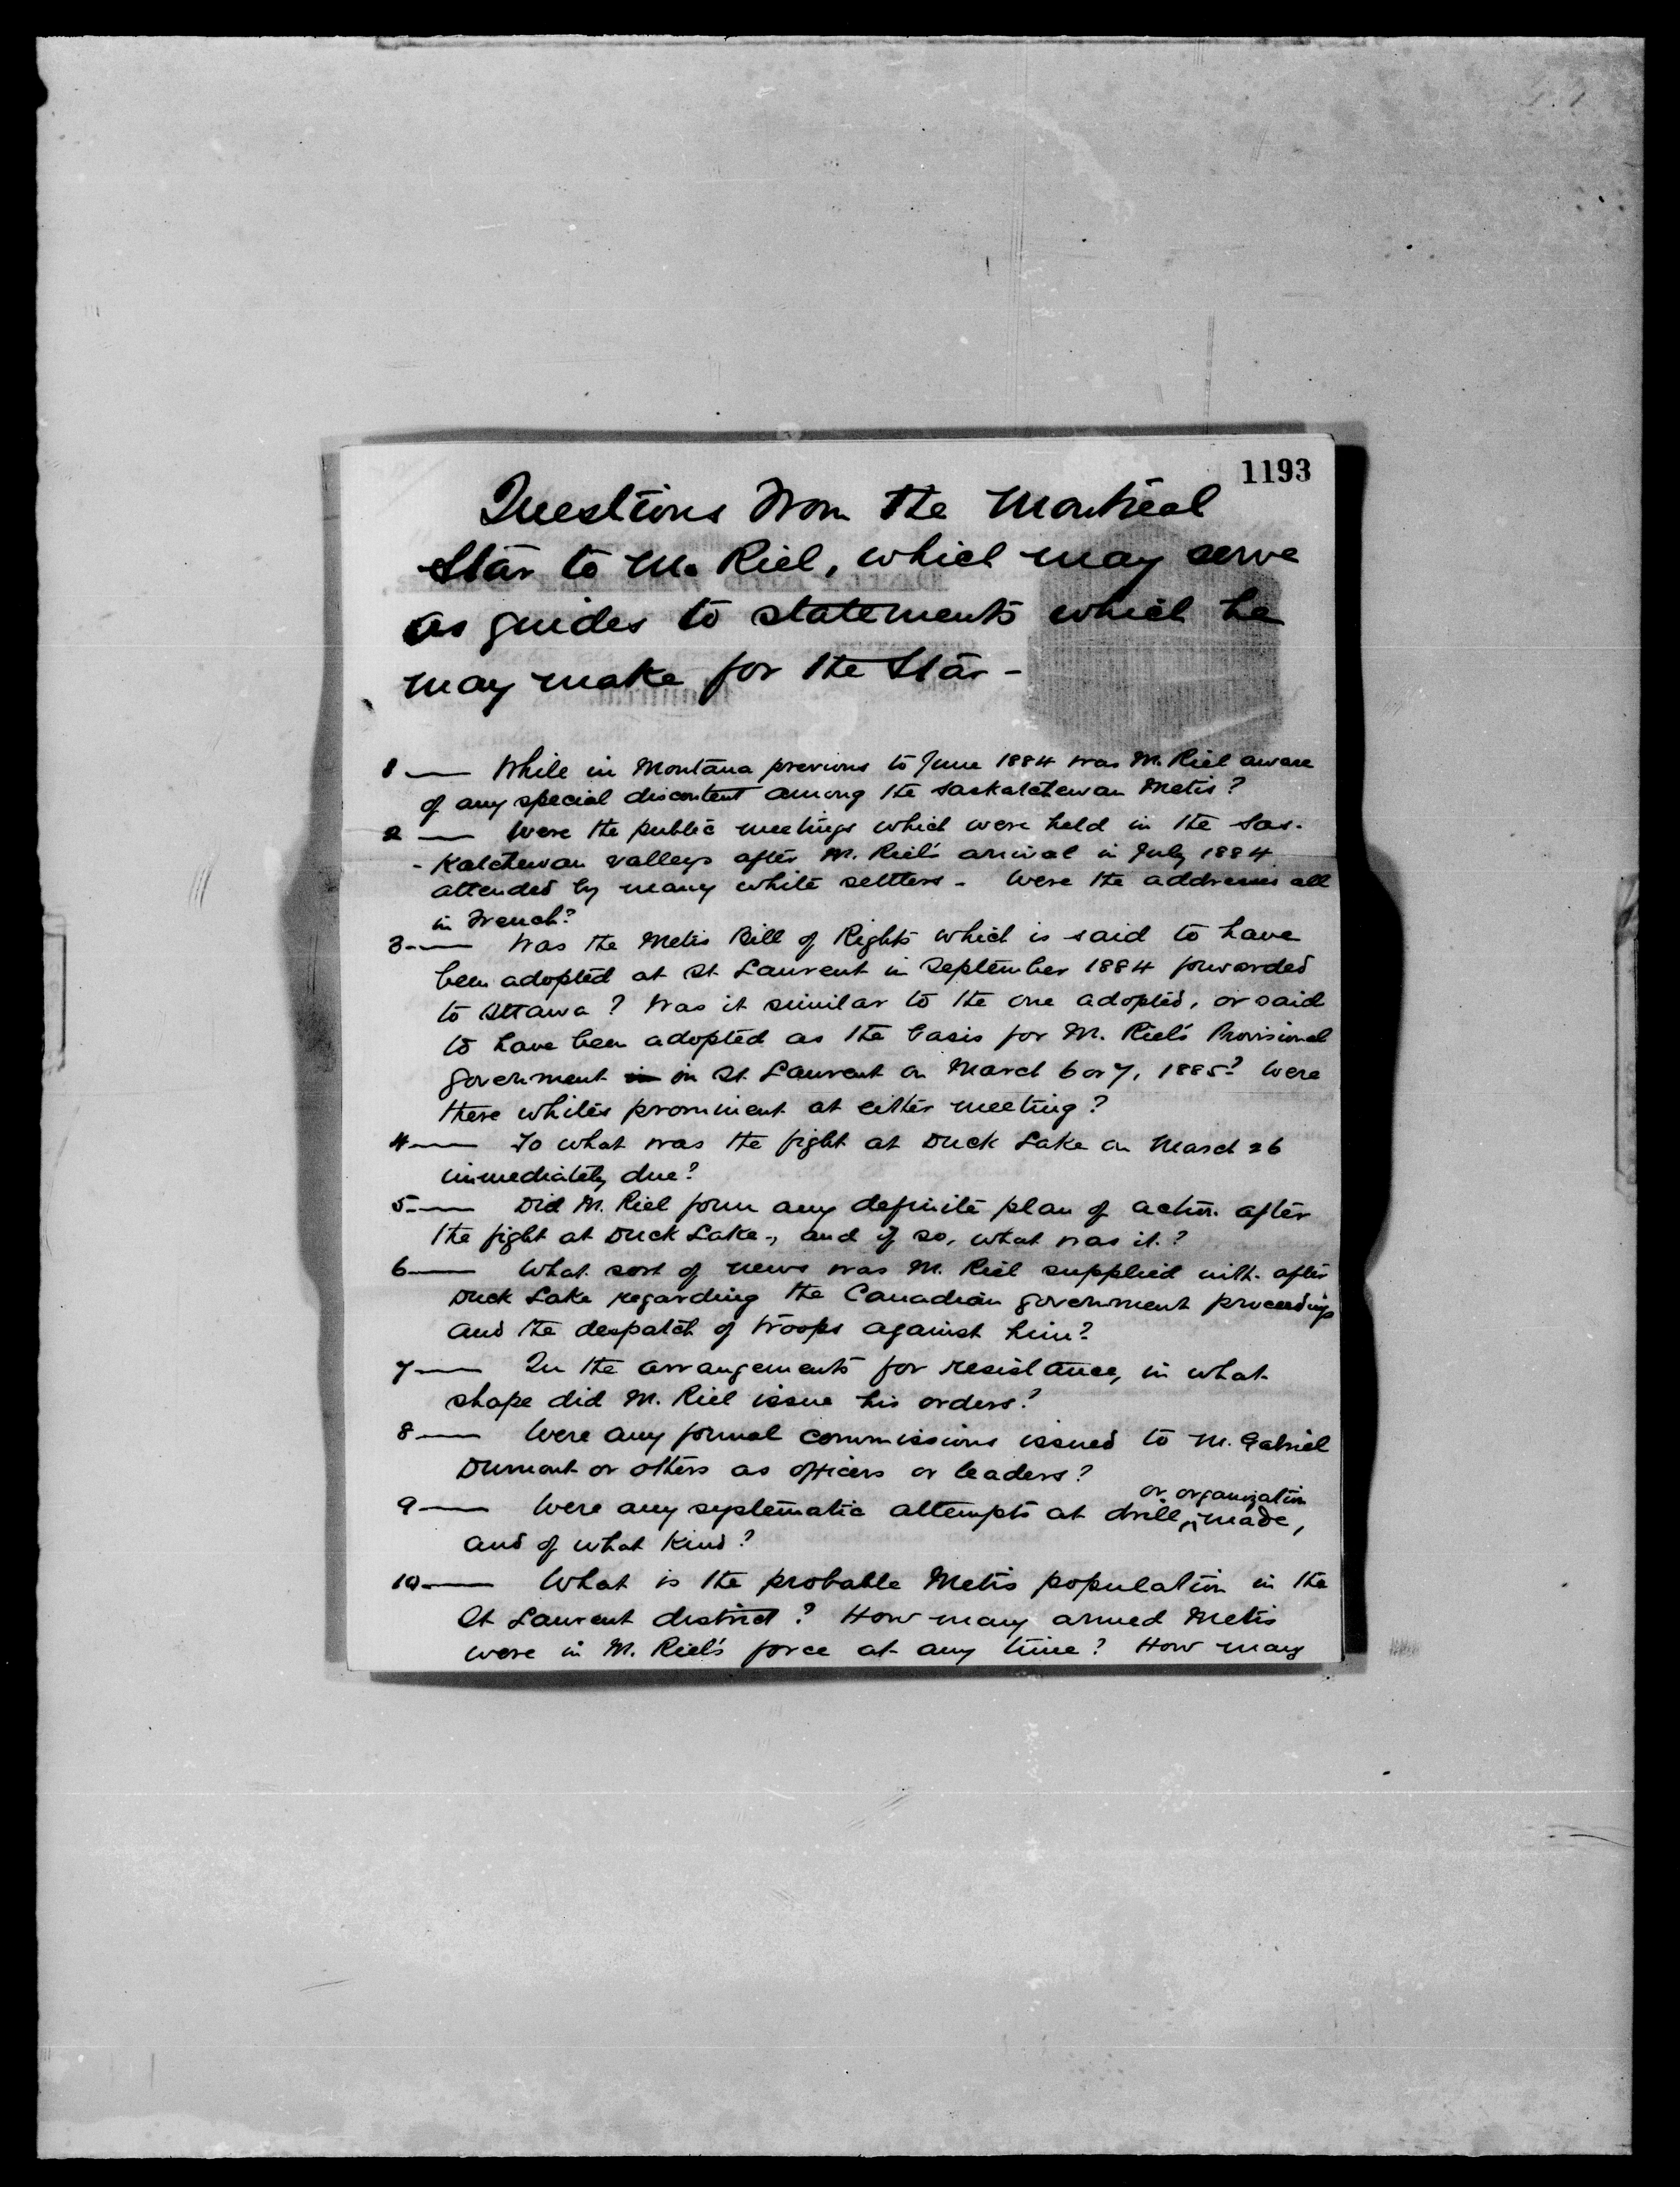 1193
Questions from the Montreal
Star to M. Riel, which may serve
as guides to statements which he
may make for the Star -
1 — While in Montana previous to June 1884 was M. Riel aware
of any special discontent among the Saskatchewan Metis?
2 — Were the public meetings which were held in the Sas-
-katchewan valleys after M. Riel's arrival in July 1884
attended by many white settlers - Were the addresses all
in French?
3 — Was the Metis Bill of Rights which is said to have
been adopted at St Laurent in September 1884 forwarded
to Ottawa? Was it similar to the one adopted, or said
to have been adopted as the basis for M. Riel's Provisional
government in in St. Laurent on March 6 or 7, 1885? Were
there whites prominent at either meeting?
4 — To what was the fight at Duck Lake on March 26
immediately due?
5 — Did M. Riel form any definite plan of action after
the fight at Duck Lake, and if so, what was it?
6 — What sort of news was M. Riel supplied with after
Duck Lake regarding the Canadian government proceedings
and the despatch of troops against him?
7 — In the arrangements for resistance, in what
shape did M. Riel issue his orders?
8 — Were any formal commissions issued to M. Gabriel
Dumont or others as officers or leaders?
9 — Were any systematic attempts at drill or organization made,
and of what kind?
10 — What is the probable Metis population in the
St Laurent district? How many armed Metis
were in M. Riel's force at any time? How many